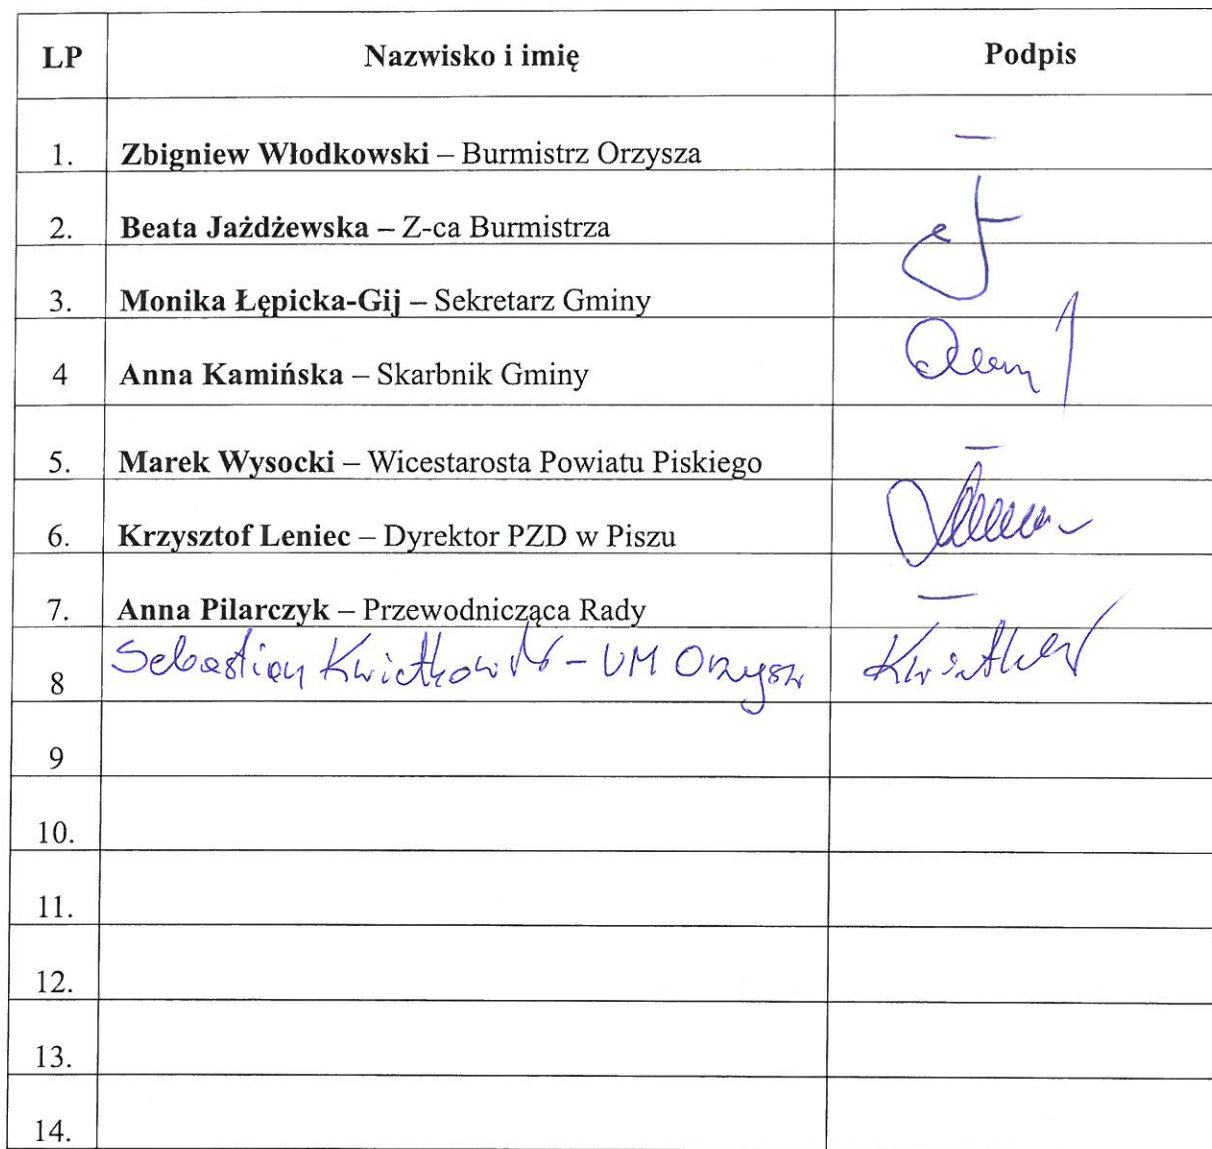 LP Nazwisko i imię Podpis
1. Zbigniew Włodkowski – Burmistrz Orzysza –
2. Beata Jażdżewska – Z-ca Burmistrza
3. Monika Łępicka-Gij – Sekretarz Gminy
4 Anna Kamińska – Skarbnik Gminy
5. Marek Wysocki – Wicestarosta Powiatu Piskiego –
6. Krzysztof Leniec – Dyrektor PZD w Piszu
7. Anna Pilarczyk – Przewodnicząca Rady –
8 Sebastian Kwiatkowski – UM Orzysz
9
10.
11.
12.
13.
14.